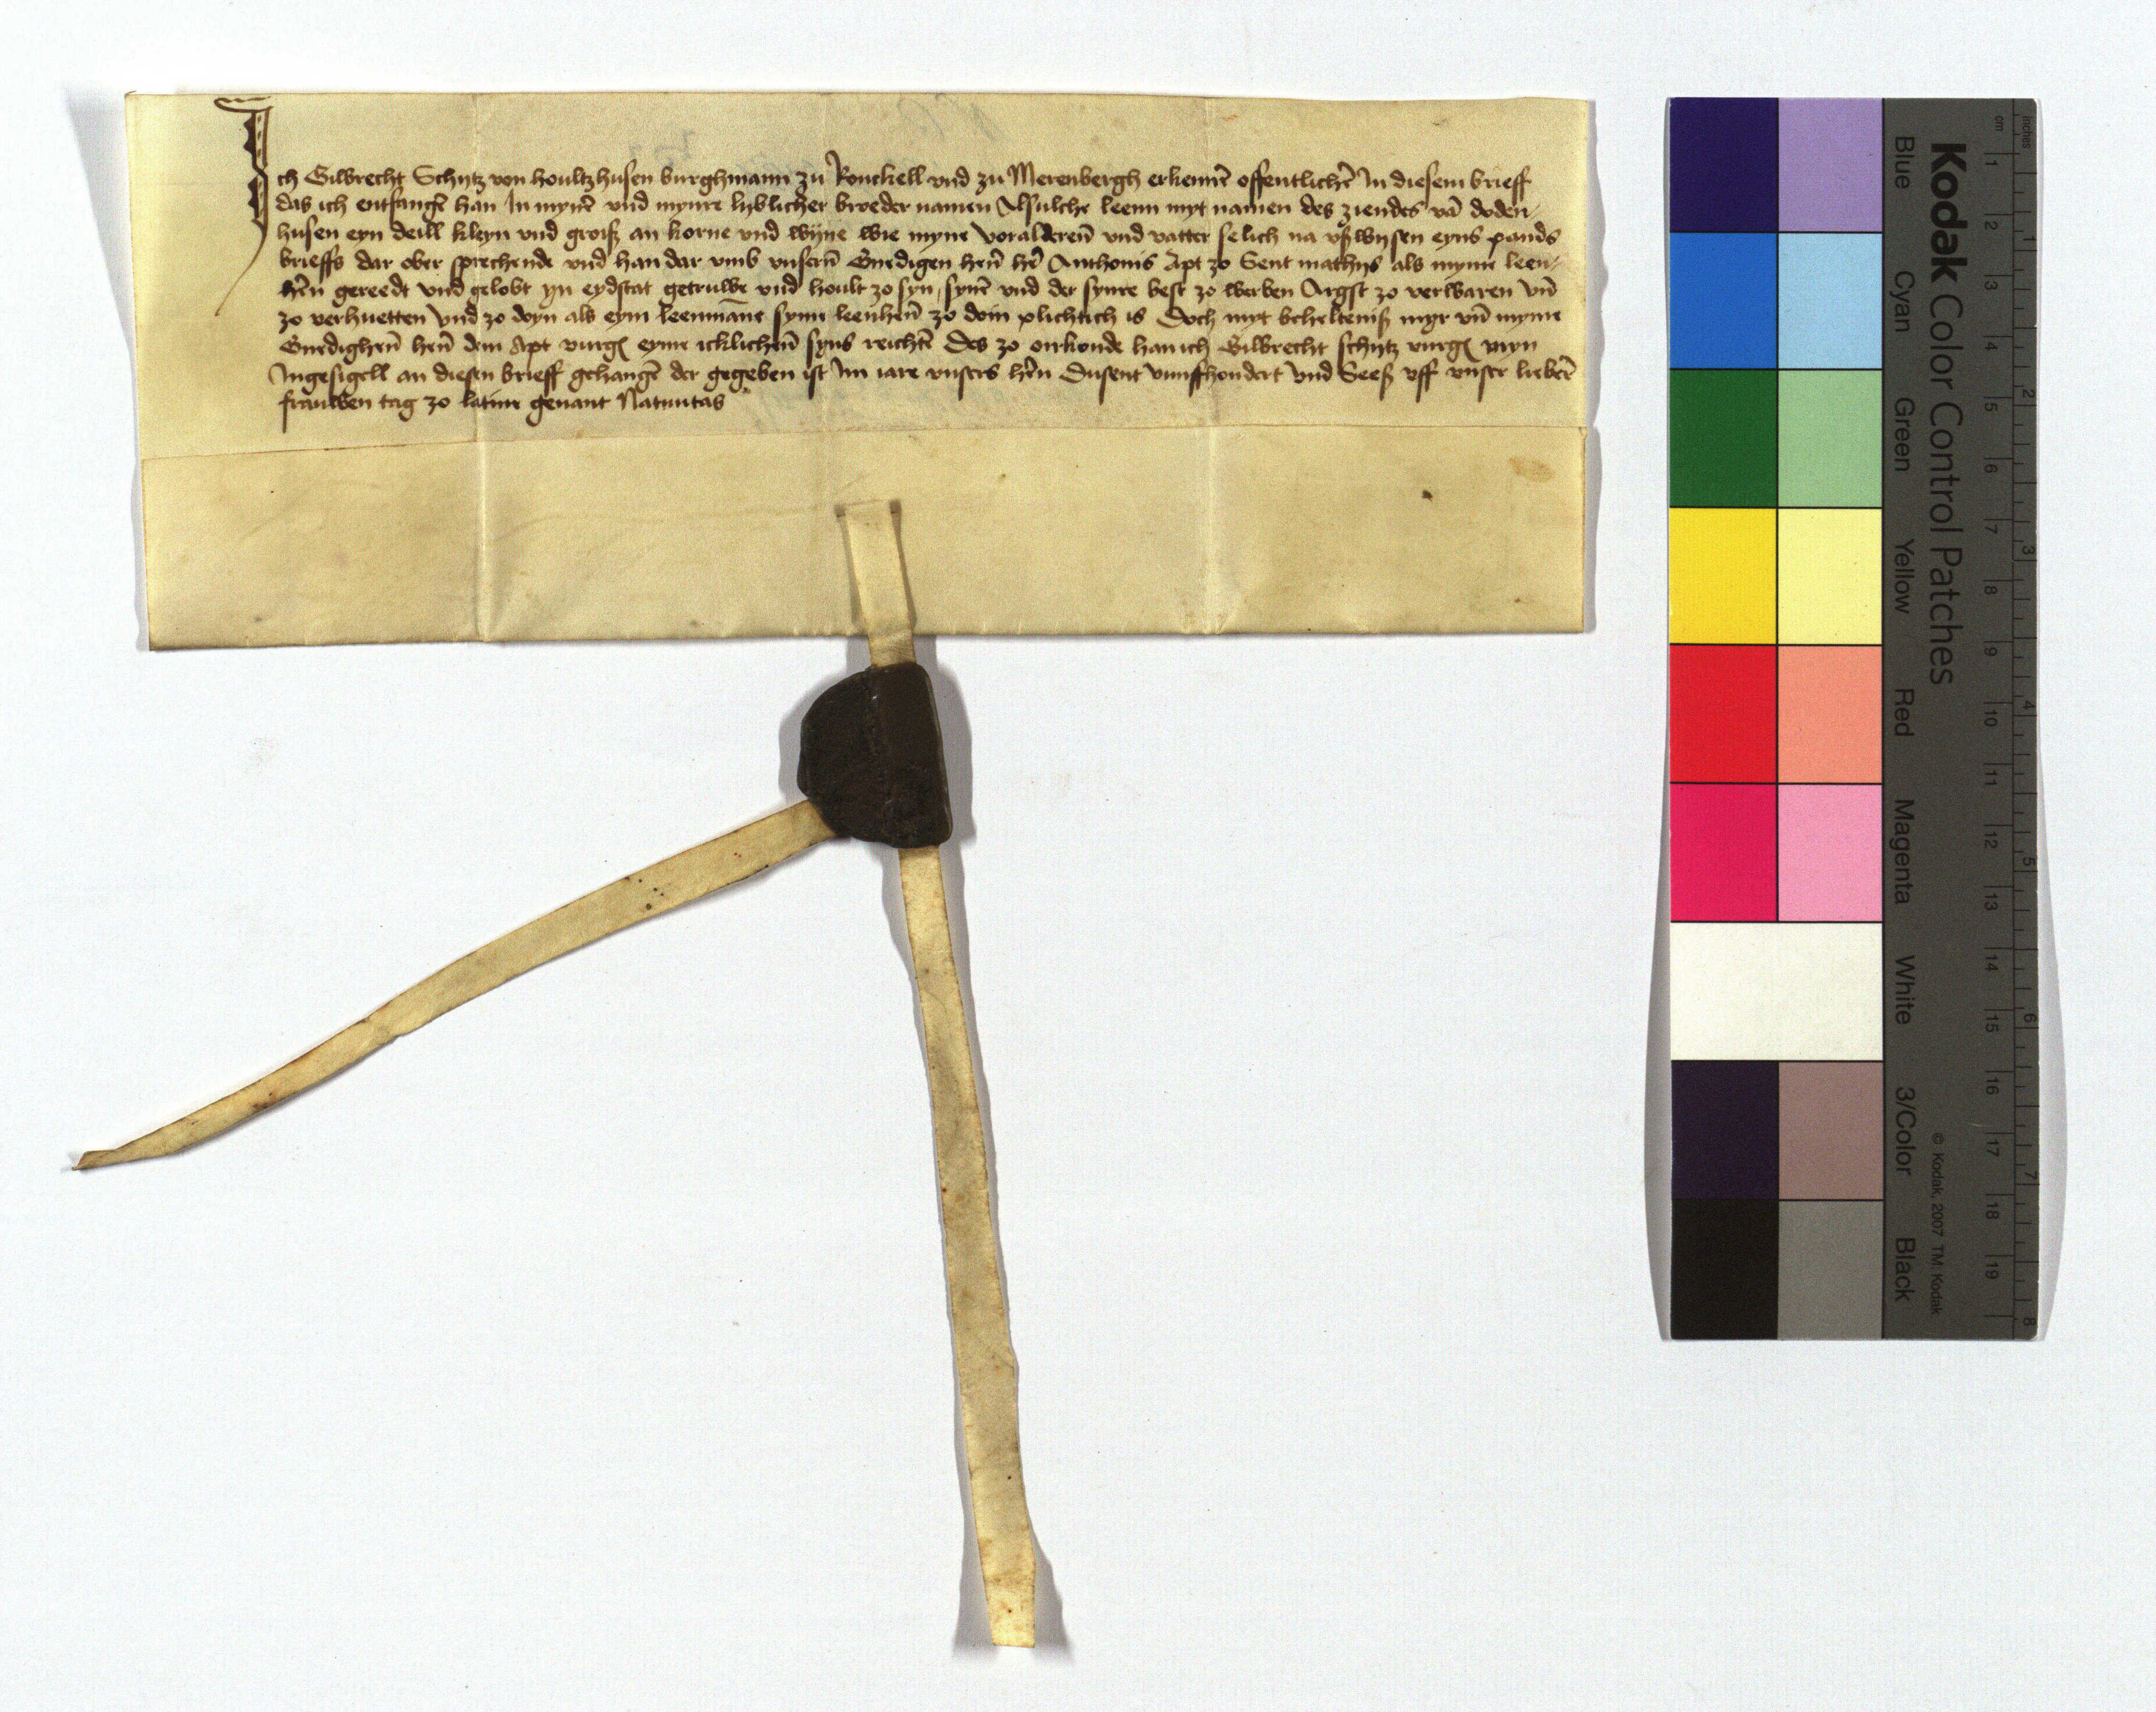 Ich Gilbrecht Schutz von houltzhusen burghmann zu Ronckell vnd zu Merenbergh erkennē offentlichē In diesem brieff
das ich entfangē han In mynē vnd mynre lyblicher broeder namen Alsulche leenn myt namen des ziendes vā doden-
husen eyn deill kleyn vnd groiß an korne vnd wyne wie myne voralderen̄ vnd vatter selich na vßwysen eyns pands
brieffs dar ober sprechende vnd han dar vmb vnsern̄ Gnedigen hen̄ hē Anthonis Apt zo Sent mathys als myme leen-
hēn gereedt vnd gelobt yn eydstat getruwe vnd hoult zo syn, synē vnd der synre best zo werben Argst zo verwaren vn̄
zo verhuetten vnd zo doyn als eym leenmāne synn leenhen̄ zo doin plichtich is Doch myt beheltenis myr vn̄ myme
Gnedighen̄ hen̄ dem Apt vurgͅ eyme icklichen̄ syns reichtē Des zo orkonde han ich Gilbrecht schutz vurgͅ myn
Ingesigell an diesen brieff gehangē der gegeben ist Im iare vnsers hēn Dusent vunffhondert vnd Seeß vff vnser liebē
frauwen tag zo latine genant Natiuitas
Kodak Color Control Patches
Blue Cyan Green Yellow Red Magenta White 3/Color Black
© Kodak, 2007 TM: Kodak
cm 1 2 3 4 5 6 7 8 9 10 11 12 13 14 15 16 17 18 19
inches 1 2 3 4 5 6 7 8